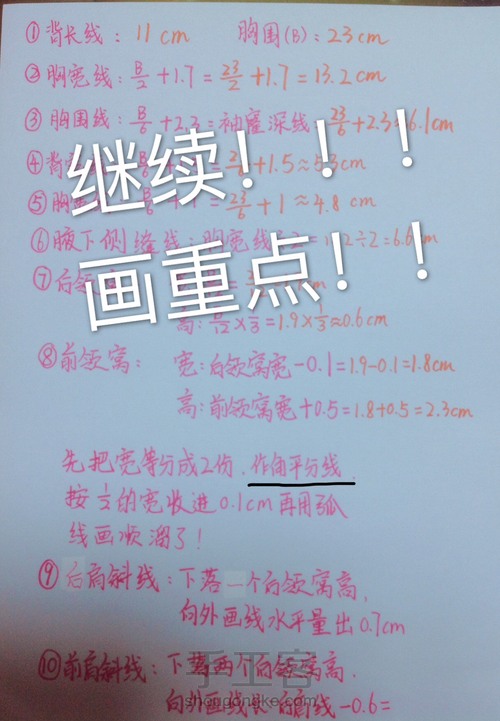 ①背长线: 11cm 胸围(B): 23cm
②胸宽线: B/2+1.7=23/2+1.7=13.2cm
③胸围线: B/6+2.3=袖窿深线 23/6+2.3 6.1cm
④背 +1.5≈5.3cm
⑤胸 23/6+1≈4.8cm
⑥腋下侧缝线:胸宽线 2÷2=6.6cm
⑦后领 cm
高: B/12×1/3=1.9×1/3≈0.6cm
⑧前领窝: 宽:后领窝宽-0.1=1.9-0.1=1.8cm
高:前领窝宽+0.5=1.8+0.5=2.3cm
先把宽等分成2份.作角平分线.
按1/2的宽收进0.1cm再用弧
线画顺溜了!
⑨后肩斜线:下落一个后领窝高,
向外画线水平量出0.7cm
⑩前肩斜线:下落两个后领窝高.
向外画线长 后肩线-0.6=
继续!!!
画重点!!
手工客
shougongke.com